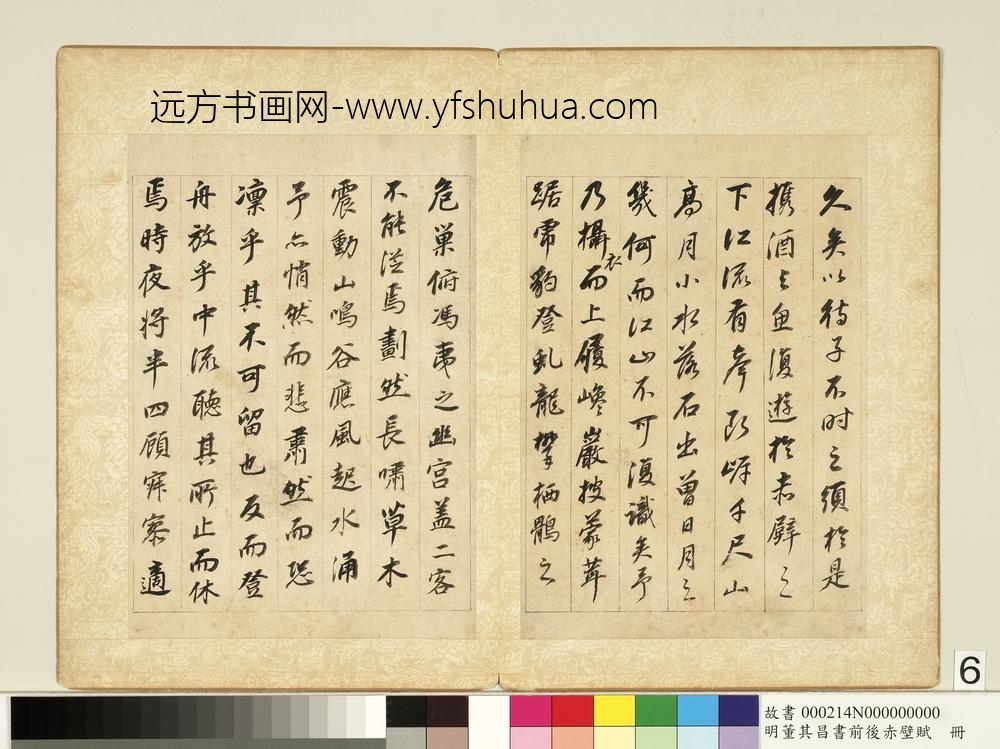 远方书画网-www.yfshuhua.com
久矣以待子不时之须於是
携酒与鱼復遊於赤壁之
下江流有聲斷岸千尺山
高月小水落石出曾日月之
幾何而江山不可復識矣予
乃攝衣而上履巉巖披蒙茸
踞虎豹登虬龍攀栖鶻之
危巢俯馮夷之幽宮盖二客
不能從焉劃然長嘯草木
震動山鳴谷應風起水涌
予亦悄然而悲肅然而恐
凛乎其不可留也反而登
舟放乎中流聽其所止而休
焉時夜将半四顧寂寥適
6
故書 000214N000000000
明董其昌書前後赤壁賦 冊